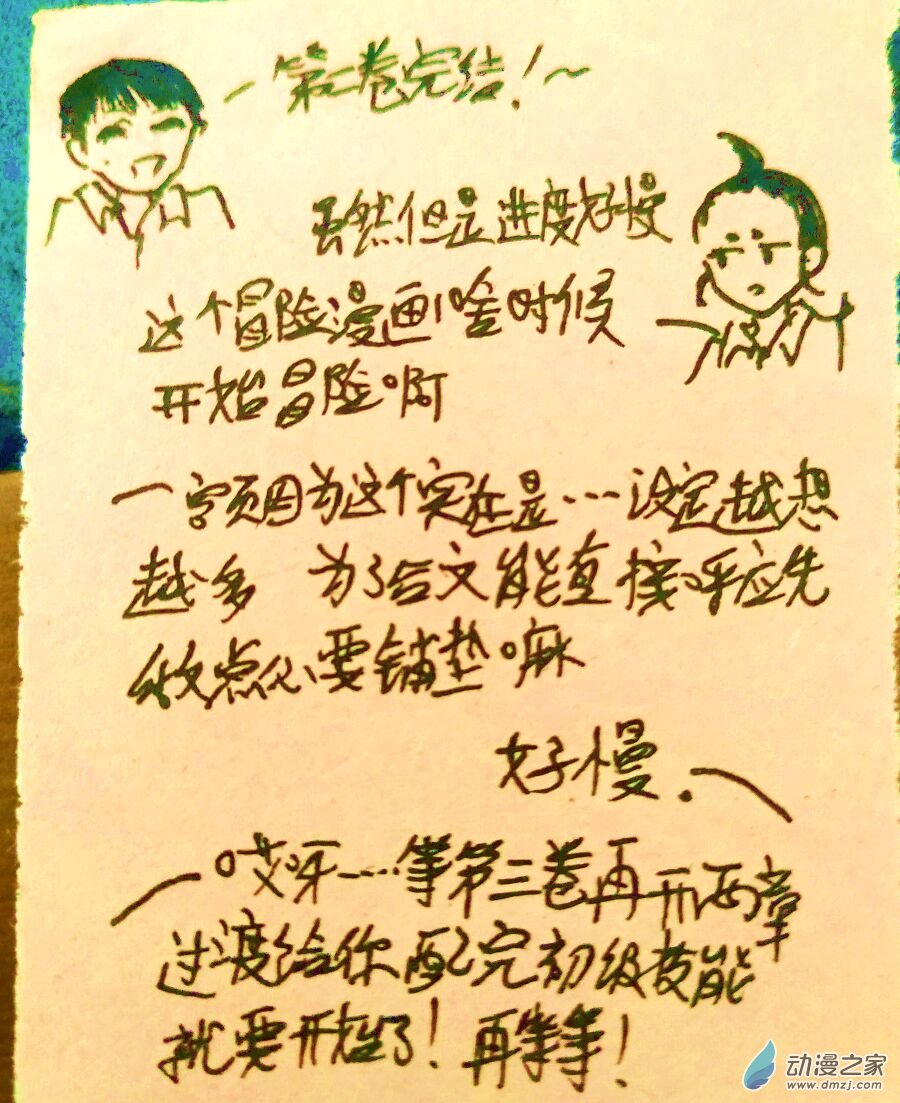 ~第二卷完结!~
虽然但是进度好慢
这个冒险漫画啥时候
开始冒险啊
因为这个实在是……设定越想
越多 为了后文能直接呼应先
做点必要铺垫嘛
好慢.
哎呀……等第三卷再开两章
过渡给你配完初级技能
就要开始了!再等等!
动漫之家
www.dmzj.com